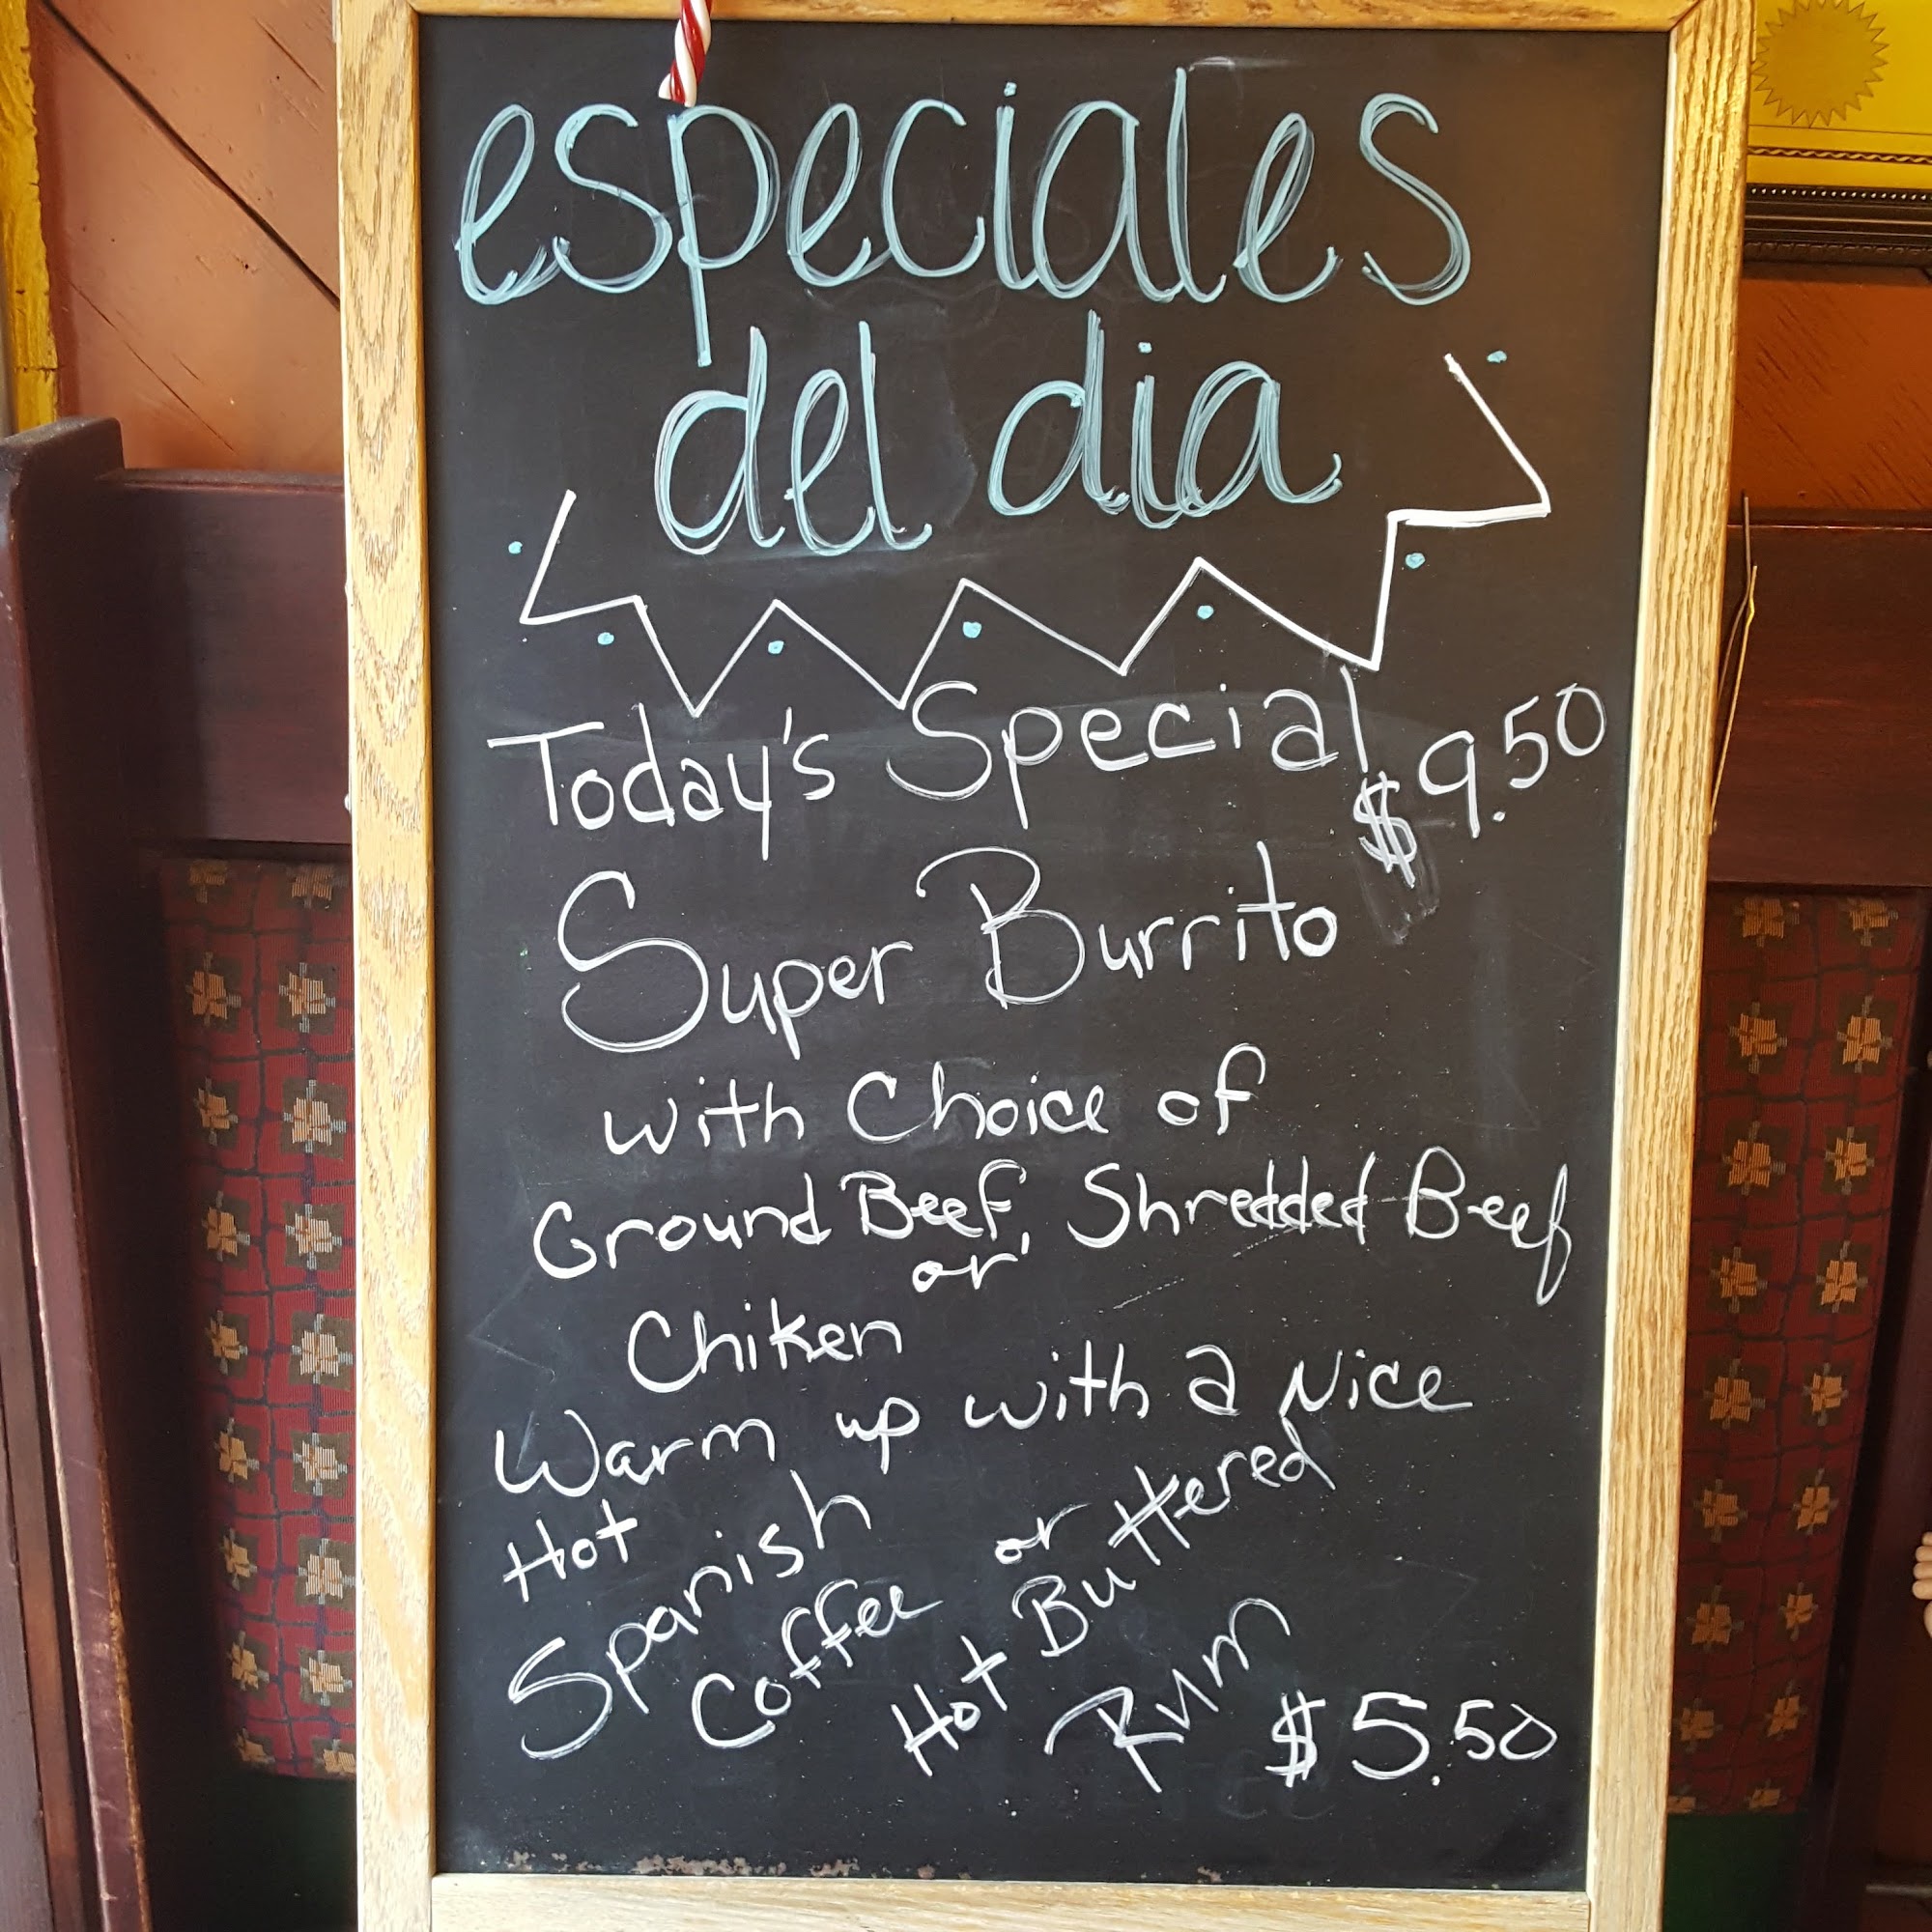 especiales
del dia
Today's Special $9.50
Super Burrito
with Choice of
Ground Beef, Shredded Beef
or
Chiken
Warm up with a Nice
Hot
Spanish
Coffee or
Hot Buttered
Rum $5.50